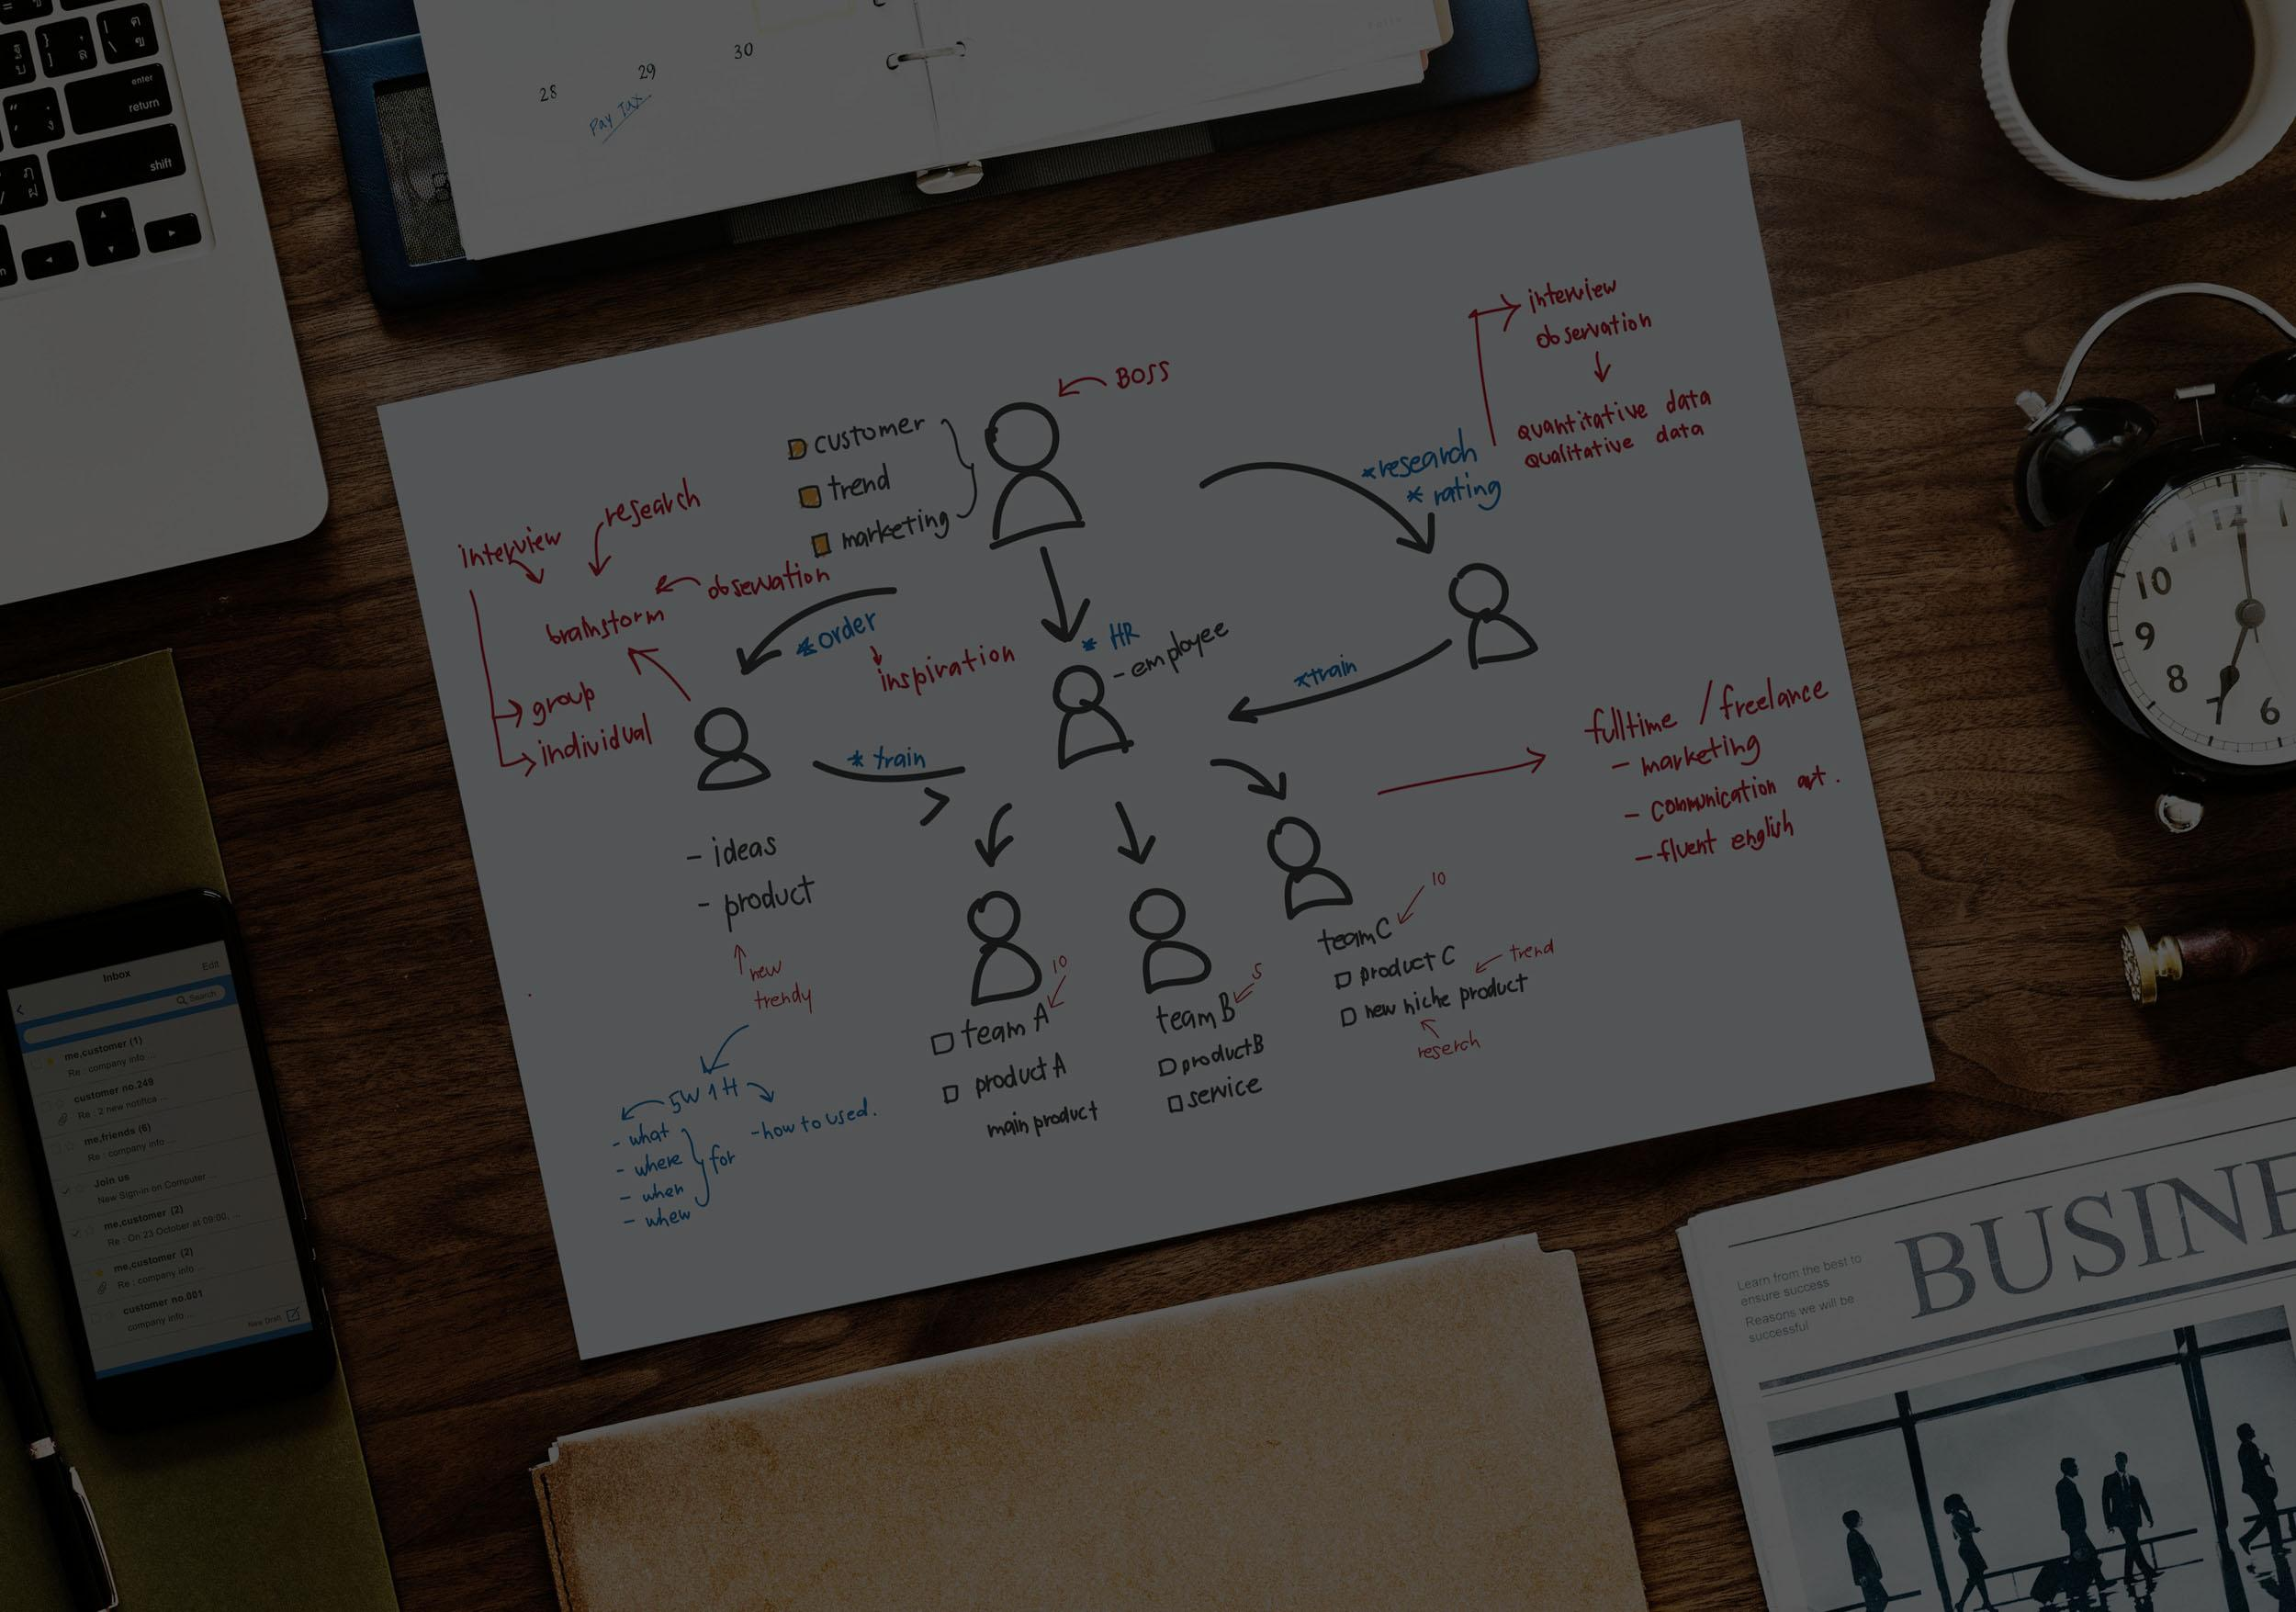 enter
return
shift
28
29
30
Pay Tax
BOSS
customer
trend
marketing
interview
observation
quantitative data
qualitative data
*research
* rating
interview
research
observation
brainstorm
group
individual
*order
inspiration
* HR
- employee
*train
* train
fulltime / freelance
- marketing
- communication art.
- fluent english
- ideas
- product
new
trendy
5W 1H
- what
- where
- when
- whew
for
- how to used.
10
team A
product A
main product
5
team B
product B
service
10
team C
product C
trend
new niche product
reserch
Inbox
Edit
Search
me,customer (1)
Re : company info ...
customer no.249
Re : 2 new notifica ...
me,friends (6)
Re : company info ...
Join us
New Sign-in on Computer ...
me,customer (2)
Re : On 23 October at 09:00, ...
me,customer (2)
Re : company info ...
customer no.001
company info ...
New Draft
12
11
10
9
8
7
6
BUSINE
Learn from the best to
ensure success
Reasons we will be
successful